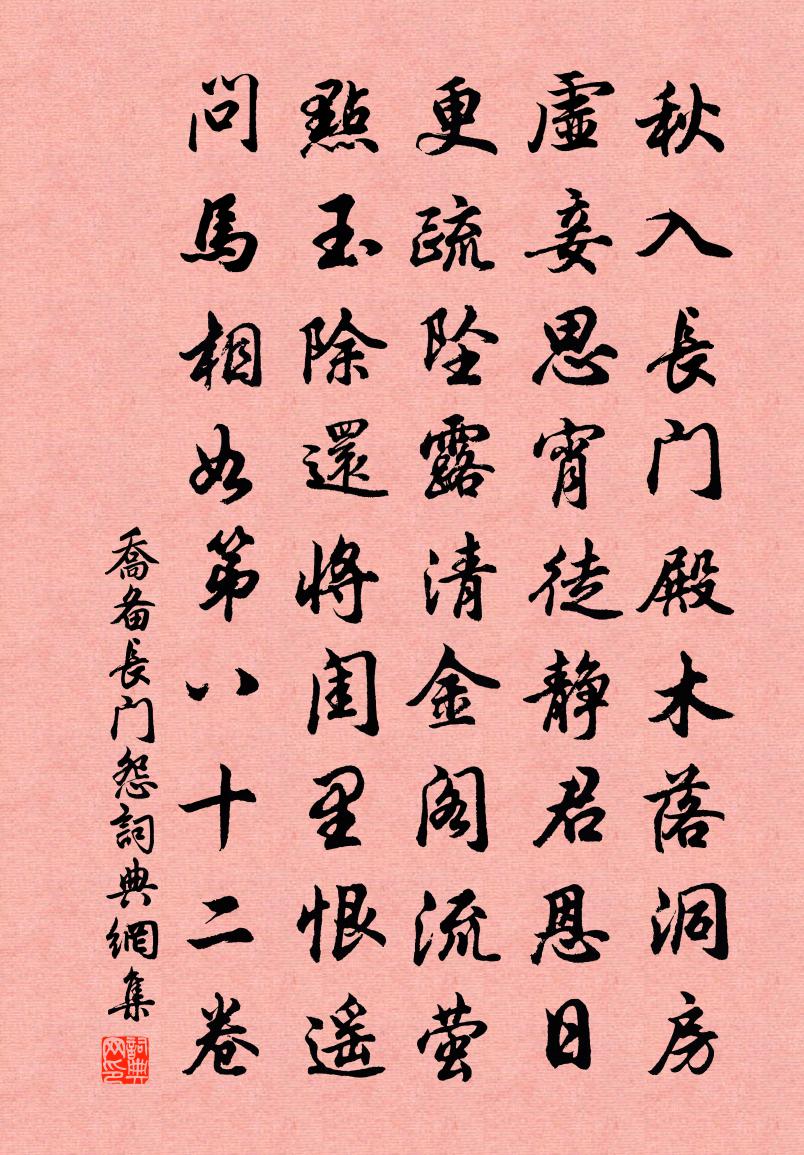 秋入長门殿木落洞房
虛妾思宵徒静君恩日
更疏坠露清金阁流萤
點玉除還将闺里恨遥
问馬相如第八十二卷
喬备長门怨詞典網集
詞典网印